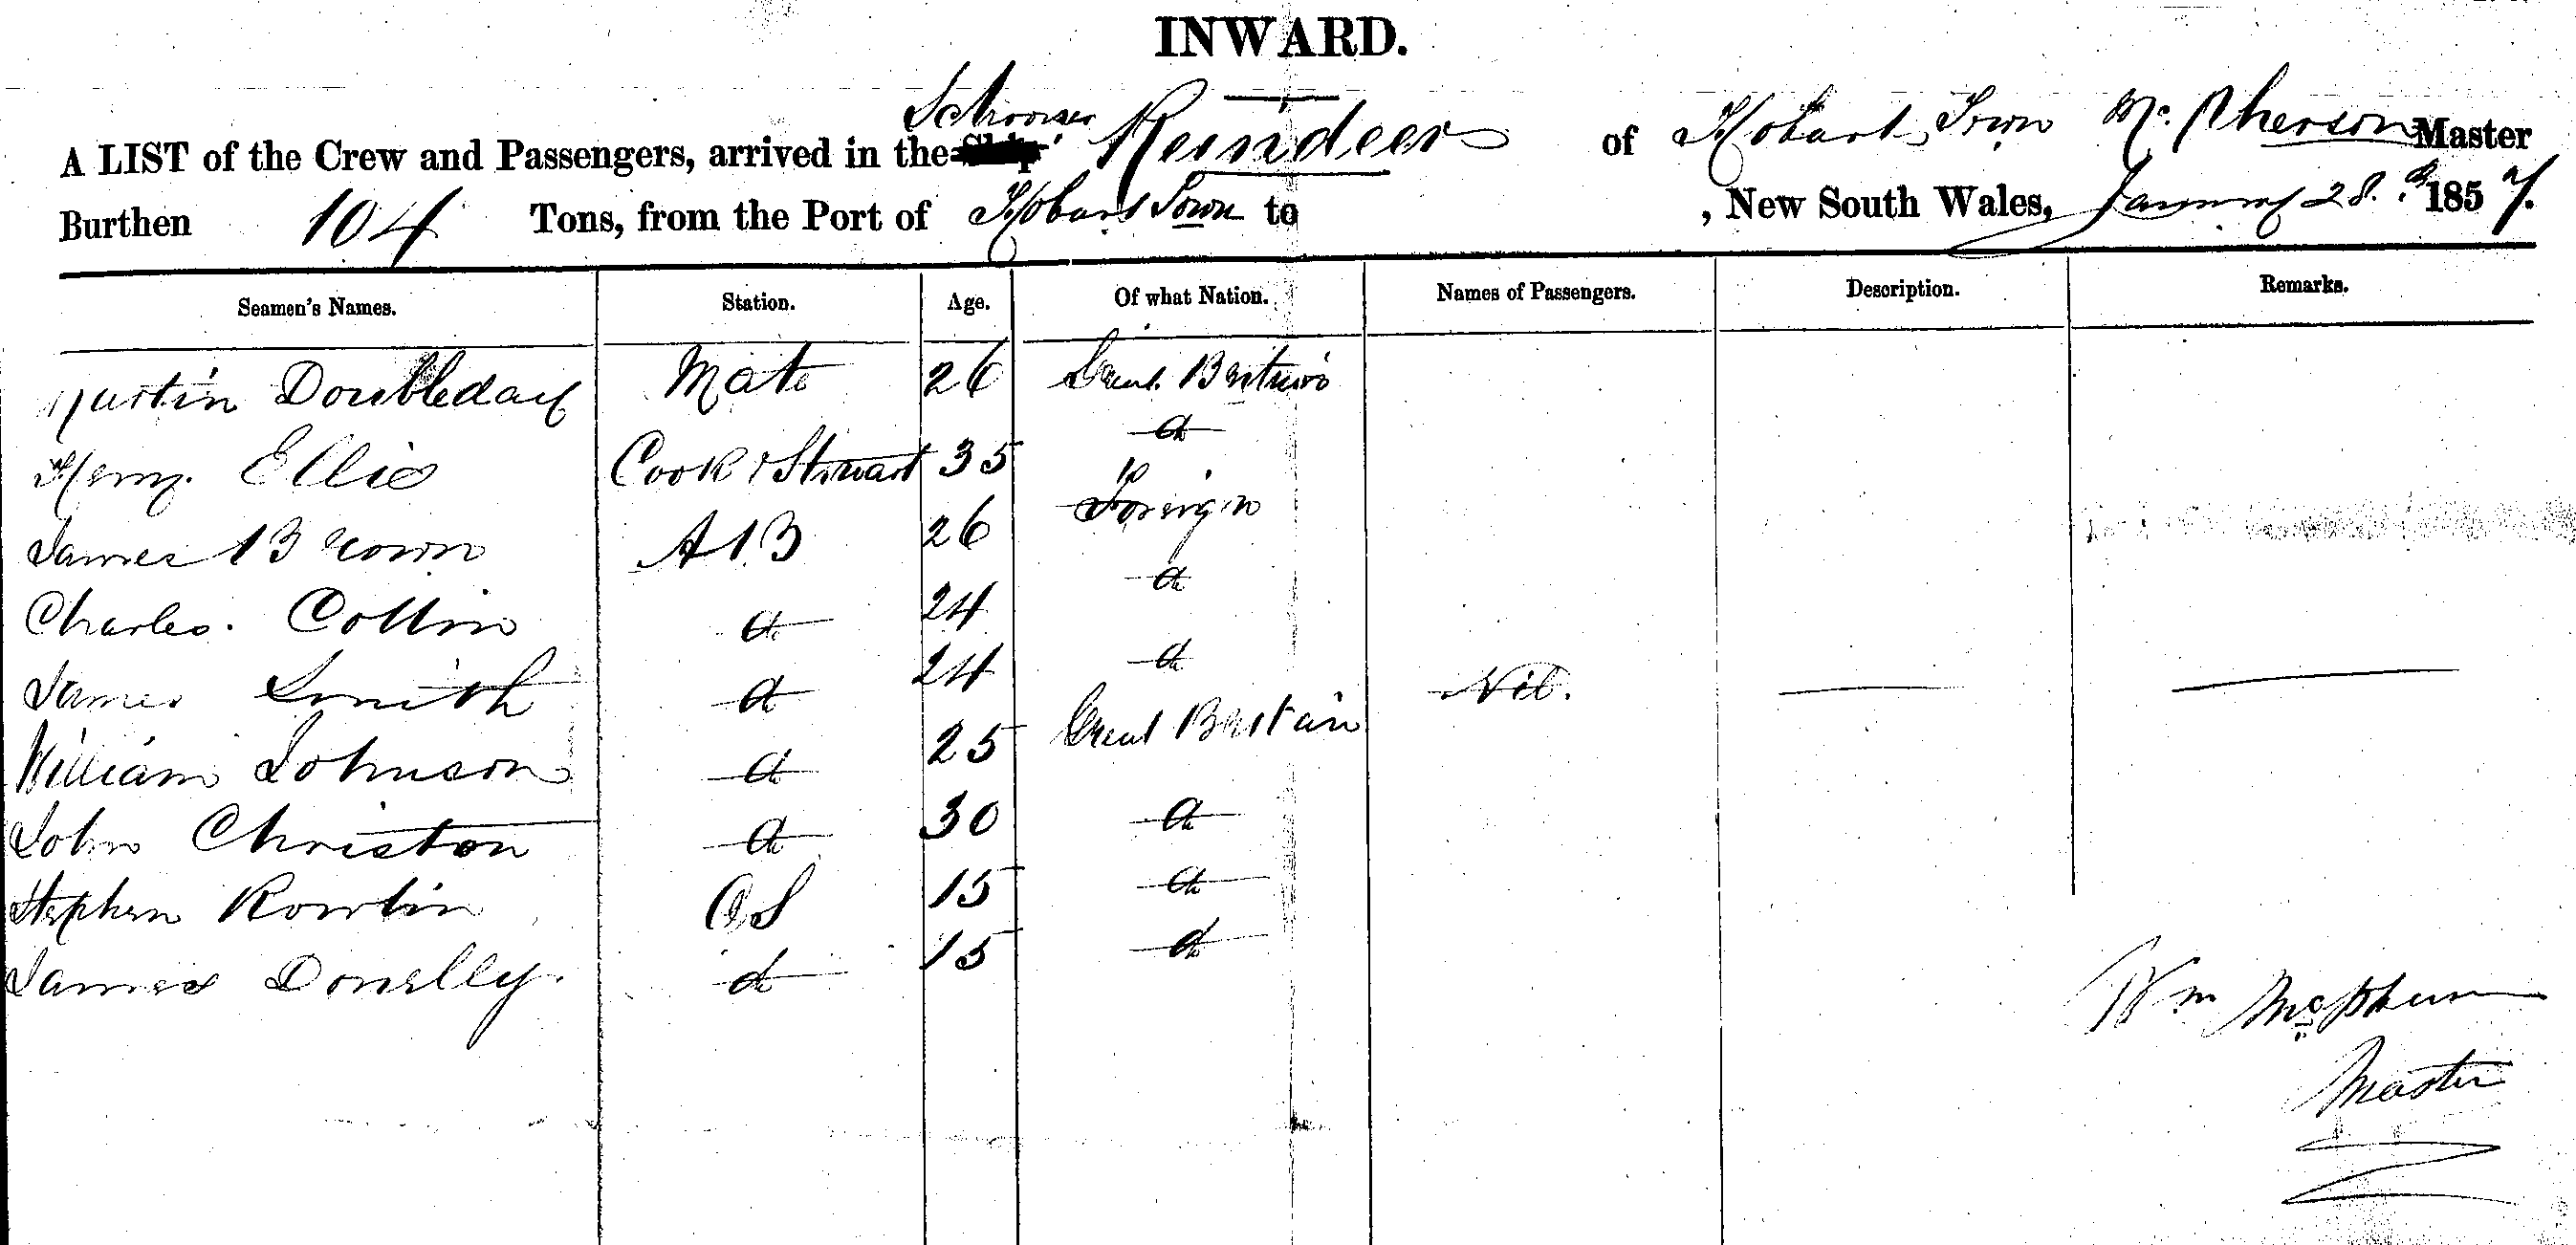 INWARD.
Schooner
A LIST of the Crew and Passengers, arrived in the Ship Reindeer of Hobart Town Mc Pherson Master
Burthen 104 Tons, from the Port of Hobart Town to , New South Wales, January 28th 1857.
Seamen's Names. Station. Age. Of what Nation. Names of Passengers. Description. Remarks.
Martin Doubleday Mate 26 Great Britain
Henry Ellis Cook & Stewart 35 do
James Brown AB 26 Foreign
Charles Collin do 24 do
James Smith do 24 do Nil.
William Johnson do 25 Great Britain
John Christon do 30 do
Stephen Rowlin OS 15 do
James Donelly do 15 do
Wm McPherson
Master